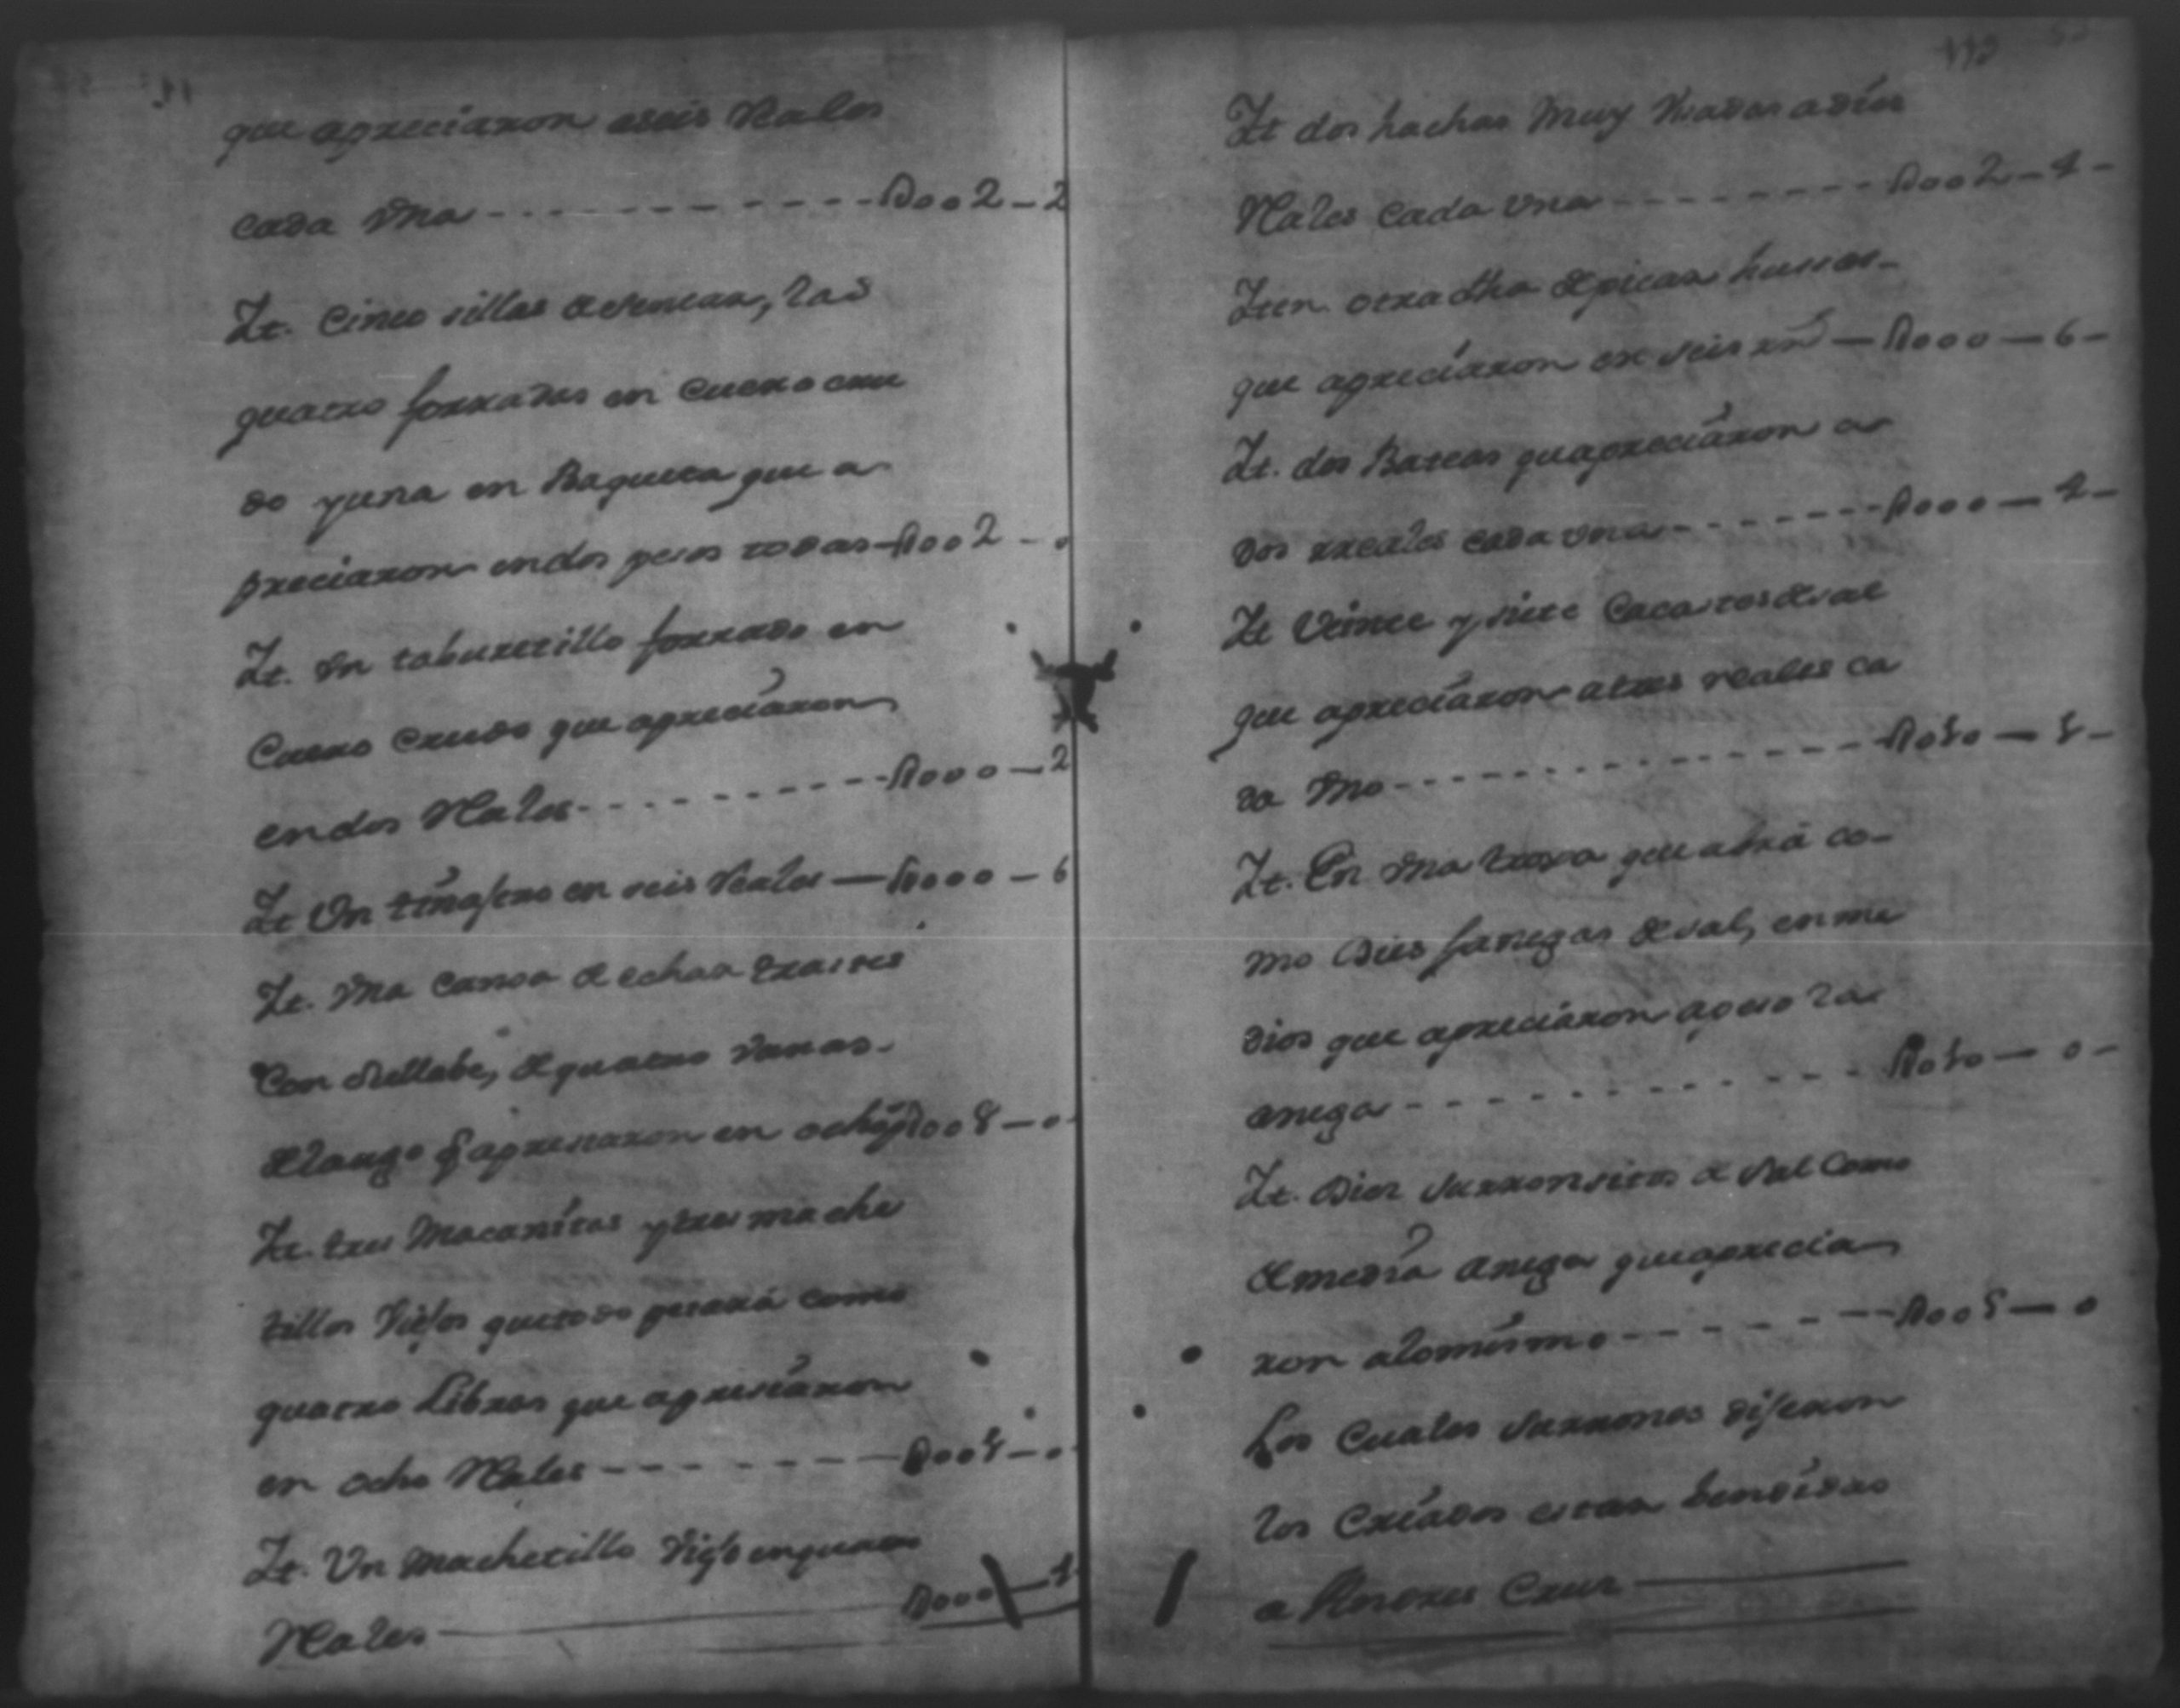 que apreciaron aseis Reales
cada Vna - - - - - - - - - - - - Do02-2
It. Cinco sillas de sentar, las
quatro forradas en Cuero cru
do yuna en Baqueta que a
preciaron endos pesos todas - Do02-0
It. Vn taburetillo forrado en
Cuero Crudo que apreciaron
endos Reales - - - - - - - - - - Do00-2
It Vn en seis Reales — Do00-6
It. Vna Canoa de echar
Con Sullabe, de quatro Varas
de largo q apresiaron en ocho p Do08-0
It. tres Macanitas ytres mache
tillos Viejos quetodo pesará como
quatro Libras que apresiaron
en ocho Reales - - - - - - - - Do01-0
It. Vn Machetillo Viejo enquatro
Reales Do00-4
112
It dos hachas Muy Vsadas adies
Reales Cada Vna - - - - - - - - - Do02-4-
Iten otra dha de picar huesos
que apreciaron en seis rs — Do00-6-
It. dos Bateas queapreciaron a
dos rreales cada vna - - - - - - - Do00-4-
It Veinte y siete Cacastos de sal
que apreciaron atres reales ca
da Vno - - - - - - - - - - - - - Do10-1-
It. En Vna troxa que abrá co-
mo Dies fanegas de sal, enme
dios que apreciaron apeso la
anega - - - - - - - - - - - - - - Do10-0-
It. Dies surronsitos de Sal Como
de media anega queaprecia
ron alomismo - - - - - - - - Do05-0
Los Cuales surrones dijeron
los Criados estar bendidos
a Cruz